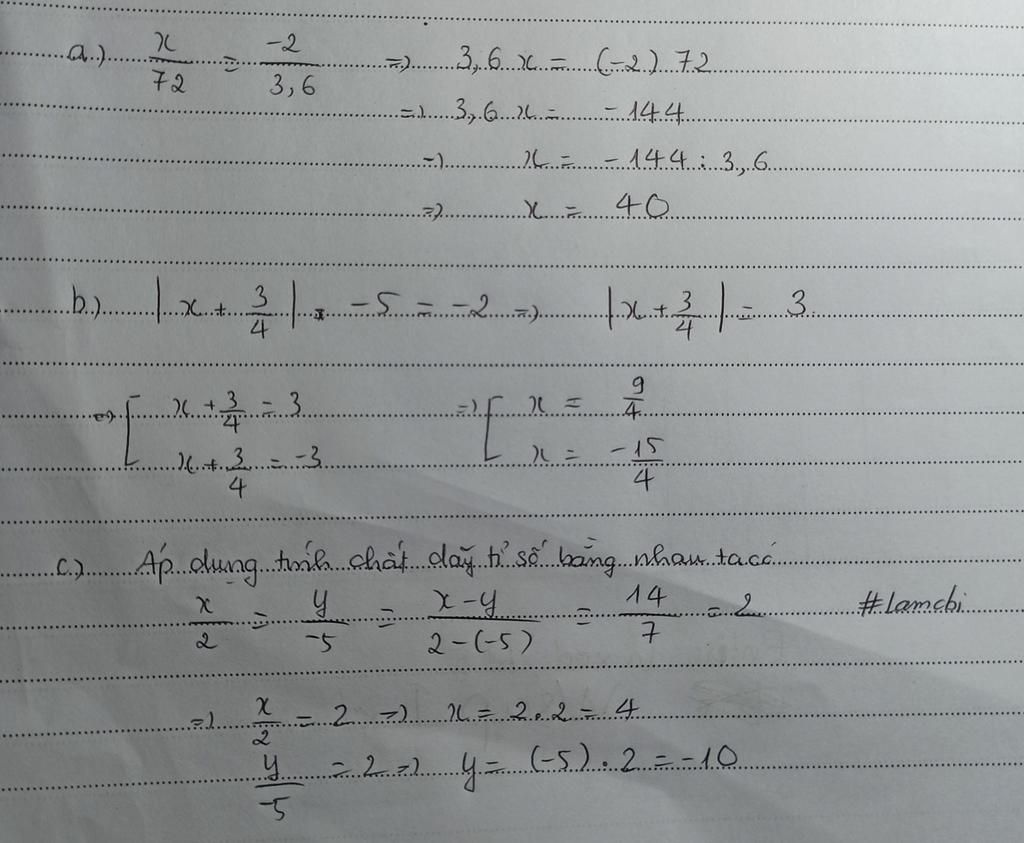 a.) x/72 = -2/3,6 => 3,6 x = (-2) 72
=> 3,6 x = -144
=> x = -144 : 3,6
=> x = 40
b.) |x + 3/4| -5 = -2 => |x + 3/4| = 3
=> [ x + 3/4 = 3 => [ x = 9/4
x + 3/4 = -3 x = -15/4
c.) Áp dụng tính chất dãy tỉ số bằng nhau ta có
x/2 = y/-5 = x-y/2-(-5) = 14/7 = 2 #lamchi
=> x/2 = 2 => x = 2.2 = 4
y/-5 = 2 => y = (-5).2 = -10